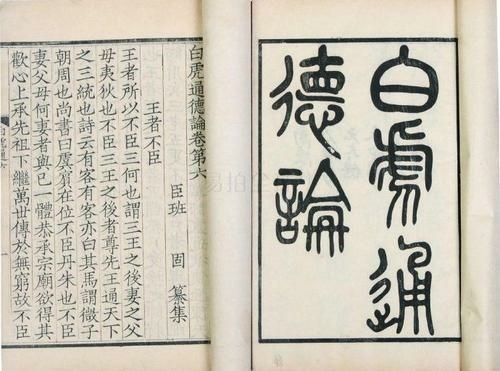 白虎通
德論
白虎通德論卷第六
臣班 固 纂集
王者不臣
王者所以不臣三何也謂三王之後妻之父
母夷狄也不臣三王之後者尊先王通天下
之三統也詩云有客有客亦白其馬謂微子
朝周也尚書曰虞賓在位不臣丹朱也不臣
妻父母何妻者與己一體恭承宗廟欲得其
歡心上承先祖下繼萬世傳於無窮故不臣